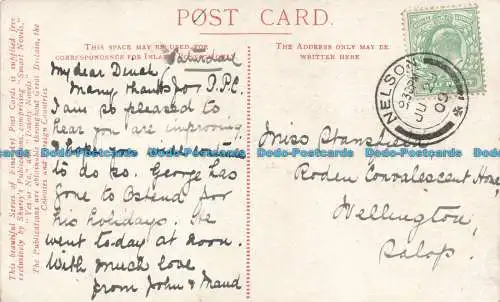 POST CARD.
THIS SPACE MAY BE USED FOR
CORRESPONDENCE FOR INLAND
THE ADDRESS ONLY MAY BE
WRITTEN HERE
Saturday
My dear
Many thanks for P.P.C.
I am so pleased to
hear you are improving
I hope you will continue
to do so. George has
gone to Ostend for
his holidays. He
went today at noon.
With much love
from John & Maud
Miss Stansfield
Roden Convalescent Home
Wellington,
Salop.
NELSON
JU
09
This beautiful Series of Fine Art Post Cards is supplied free
exclusively by Shurey's Publications, comprising "Smart Novels,"
"Yes or No," and "Dainty Novels."
The Publications are obtainable throughout Great Britain, the
Colonies and Foreign Countries.
Bldo-Postcards.com